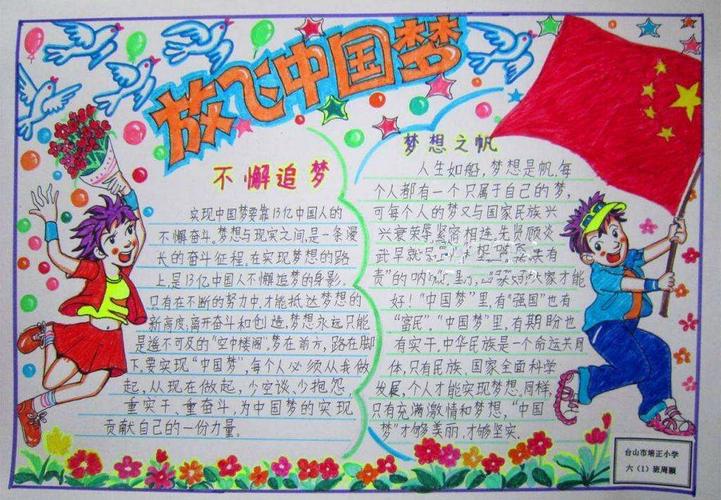 放飞中国梦
不懈追梦
实现中国梦要靠13亿中国人的
不懈奋斗。梦想与现实之间,是一条漫
长的奋斗征程,在实现梦想的路
上,是13亿中国人不懈追梦的身影。
只有在不断的努力中,才能抵达梦想的
新高度;离开奋斗和创造,梦想永远只能
是遥不可及的“空中楼阁”。梦在前方,路在脚
下,要实现“中国梦”,每个人必须从我做
起,从现在做起,少空谈、少抱怨,
重实干、重奋斗,为中国梦的实现
贡献自己的一份力量。
梦想之帆
人生如船,梦想是帆。每
个人都有一个只属于自己的梦,
可每个人的梦又与国家民族兴
兴衰荣辱紧密相连,先贤顾炎
武早就
有
责”的呐 里, 大家才能
好!“中国梦”里有“强国”也有
“富民”。“中国梦”里,有期盼也
有实干,中华民族是一个命运共同
体,只有民族、国家全面科学
发展,个人才能实现梦想,同样,
只有充满激情和梦想,“中国
梦”才够美丽,才够坚实。
台山市培正小学
六(1)班周颖